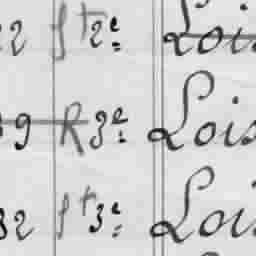 22 ft 2e Lois
39 R 3e Lois
32 ft 3e Lois